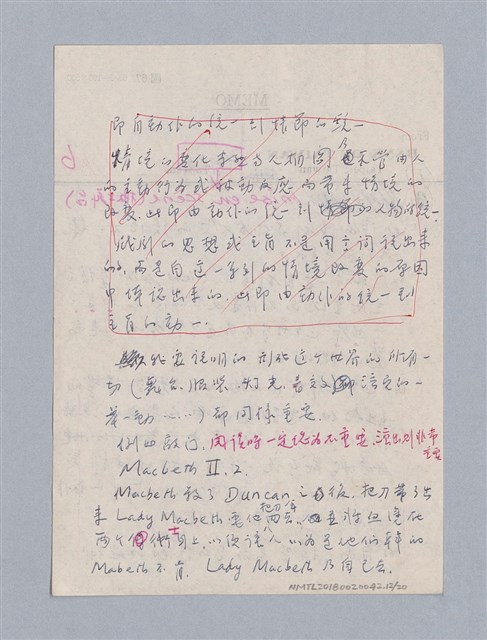 即自動作的統一到情節的統一
情境的變化重要与人相関，
的主動行為或被動反應而帶來情境的
改變。此即由動作的統一到人物的統一
戲劇的思想或主旨不是用言詞說出來
的，而是自這一系列的情境改變的原因
中体認出來的。此即由動作的統一到
主旨的統一.
外要說明的到此這个世界的所有一
切（舞台、服裝、灯光、演員的一
舉一動……）都同樣重要.
例如敲门，閱讀時一定認為不重要，演出則非常
重要
Macbeth II. 2.
Macbeth 殺了 Duncan 之後，把刀帶了出
來 Lady Macbeth 要他把刀拿回去，並
兩个衛士身上，以便讓人以為是他們幹的
Mabeth 不肯. Lady Macbeth 乃自己去.
NMTL20180020042.12/20
MEMO